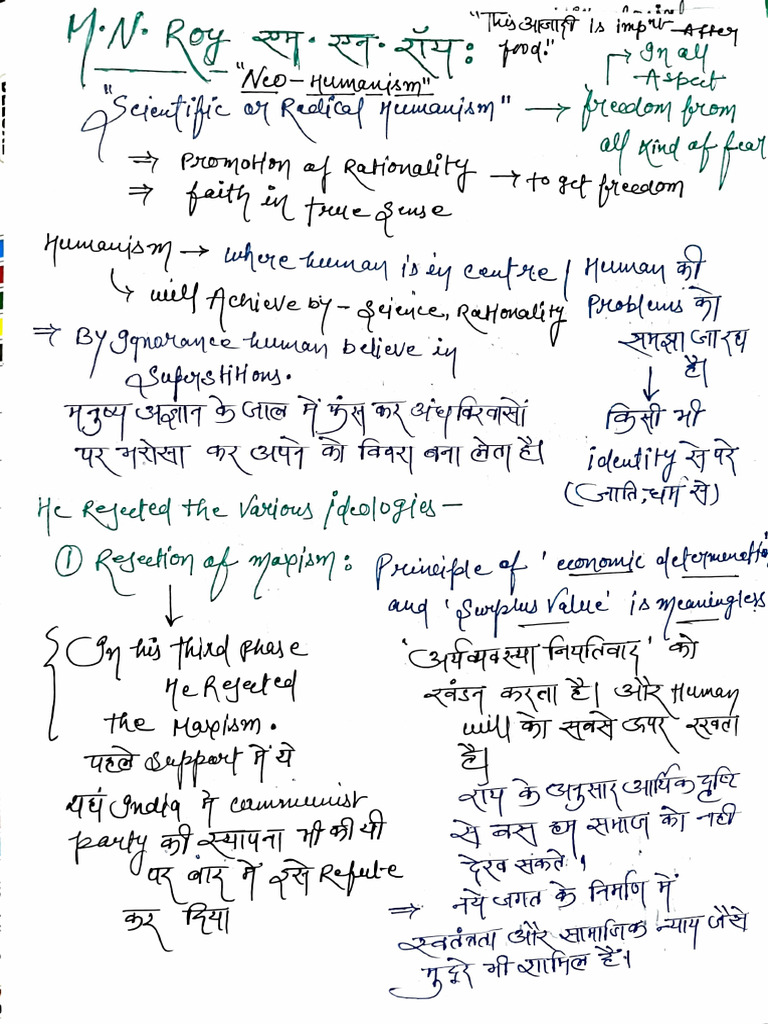 M.N. Roy एम. एन. रॉय:
"This आजादी is impt After
food."
"Neo-Humanism"
"Scientific or Radical Humanism" → freedom from
all kind of fear
→ In all
Aspect
⇒ Promotion of Rationality → to get freedom
⇒ faith in true sense
Humanism → where human is in centre / Human की
Problems को
समझा जा रहा
है।
↓
किसी भी
identity से परे
(जाति, धर्म से)
↳ will Achieve by - Science, Rationality
⇒ By Ignorance human believe in
Superstitions.
मनुष्य अज्ञान के जाल में फंस कर अंधविश्वासों
पर भरोसा कर अपने को विवश बना लेता है।
He Rejected the various ideologies -
① Rejection of Maxism: Principle of 'economic
and 'Surplus Value' is meaningless
↓
In his third phase
He Rejected
the Maxism.
पहले Support में थे
यहां India में communist
party की स्थापना भी की थी
पर बाद में इसे Refute
कर दिया
'अर्थव्यवस्था नियतिवाद' को
खंडन करता है। और Human
will को सबसे ऊपर रखता
है।
रॉय के अनुसार आर्थिक दृष्टि
से बस हम समाज को नही
देख सकते।
⇒ नये जगत के निर्माण में
स्वतंत्रता और सामाजिक न्याय जैसे
मुद्दे भी शामिल हैं।